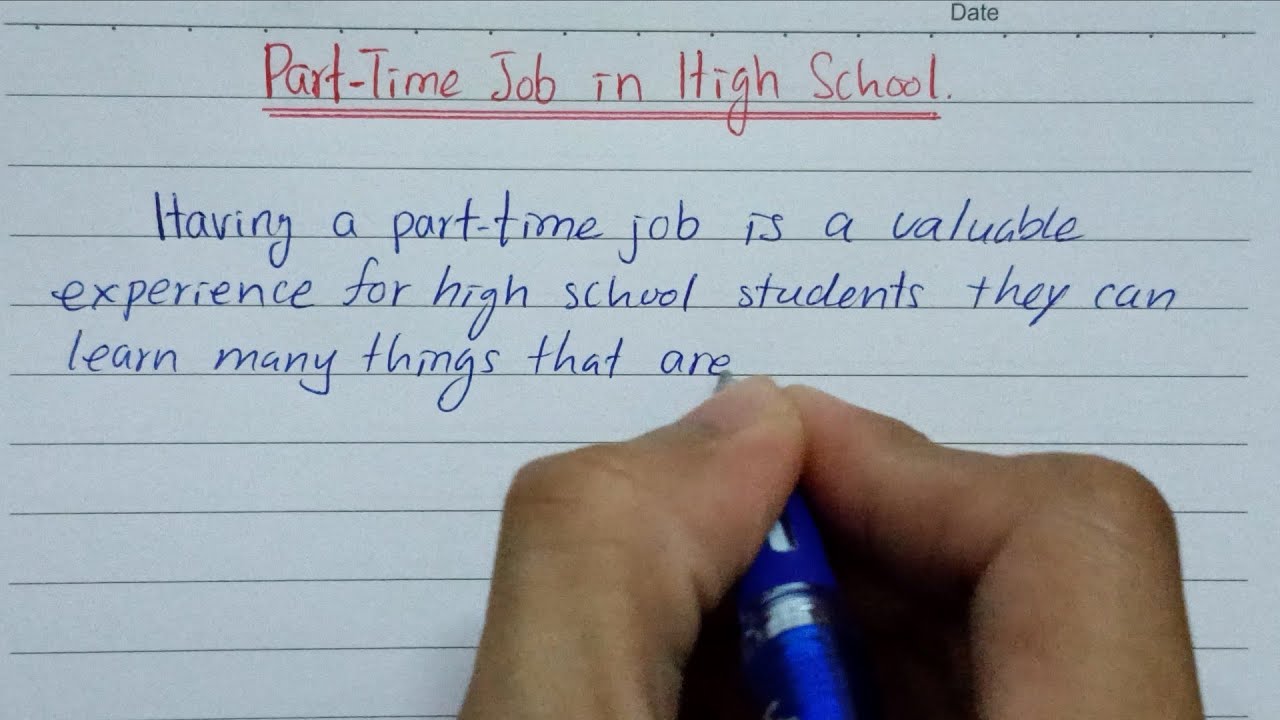 Date
Part-Time Job in High School.
Having a part-time job is a valuable
experience for high school students they can
learn many things that are